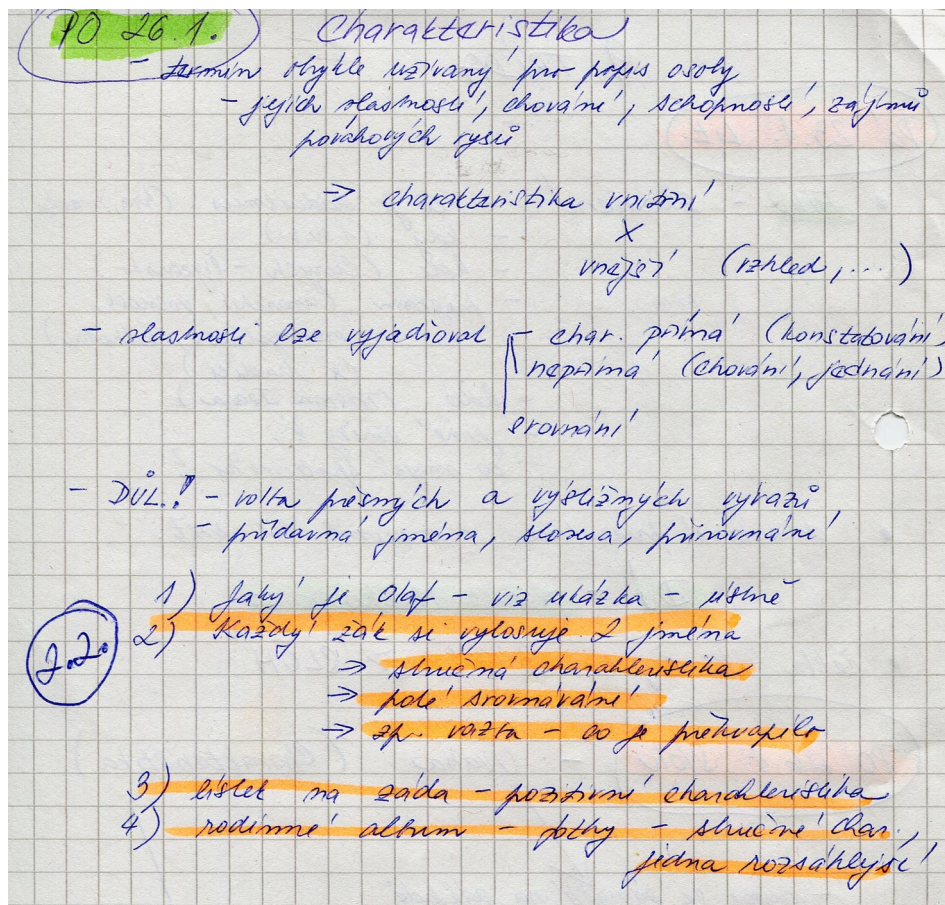 PO 26.1. Charakteristika
- termín obykle užívaný pro popis osoby
- jejích vlastností, chování, schopností, zájmů
povahových rysů
⇒ charakteristika vnitřní
×
vnější (vzhled, ...)
- vlastnosti lze vyjadřovat - char. přímá (konstatování)
nepřímá (chování, jednání)
srovnání
- DŮL.! - volba přesných a výstižných výrazů
- přídavná jména, slovesa, přirovnání
1) Jaký je Olaf - viz ukázka - ústně
2.2.
2) Každý žák si vylosuje 2 jména
⇒ stručná charakteristika
⇒ poté srovnávání
⇒ zp. vazba - co je překvapilo
3) lístek na záda - pozitivní charakteristika
4) rodinné album - fotky - stručné char.,
jedna rozsáhlejší